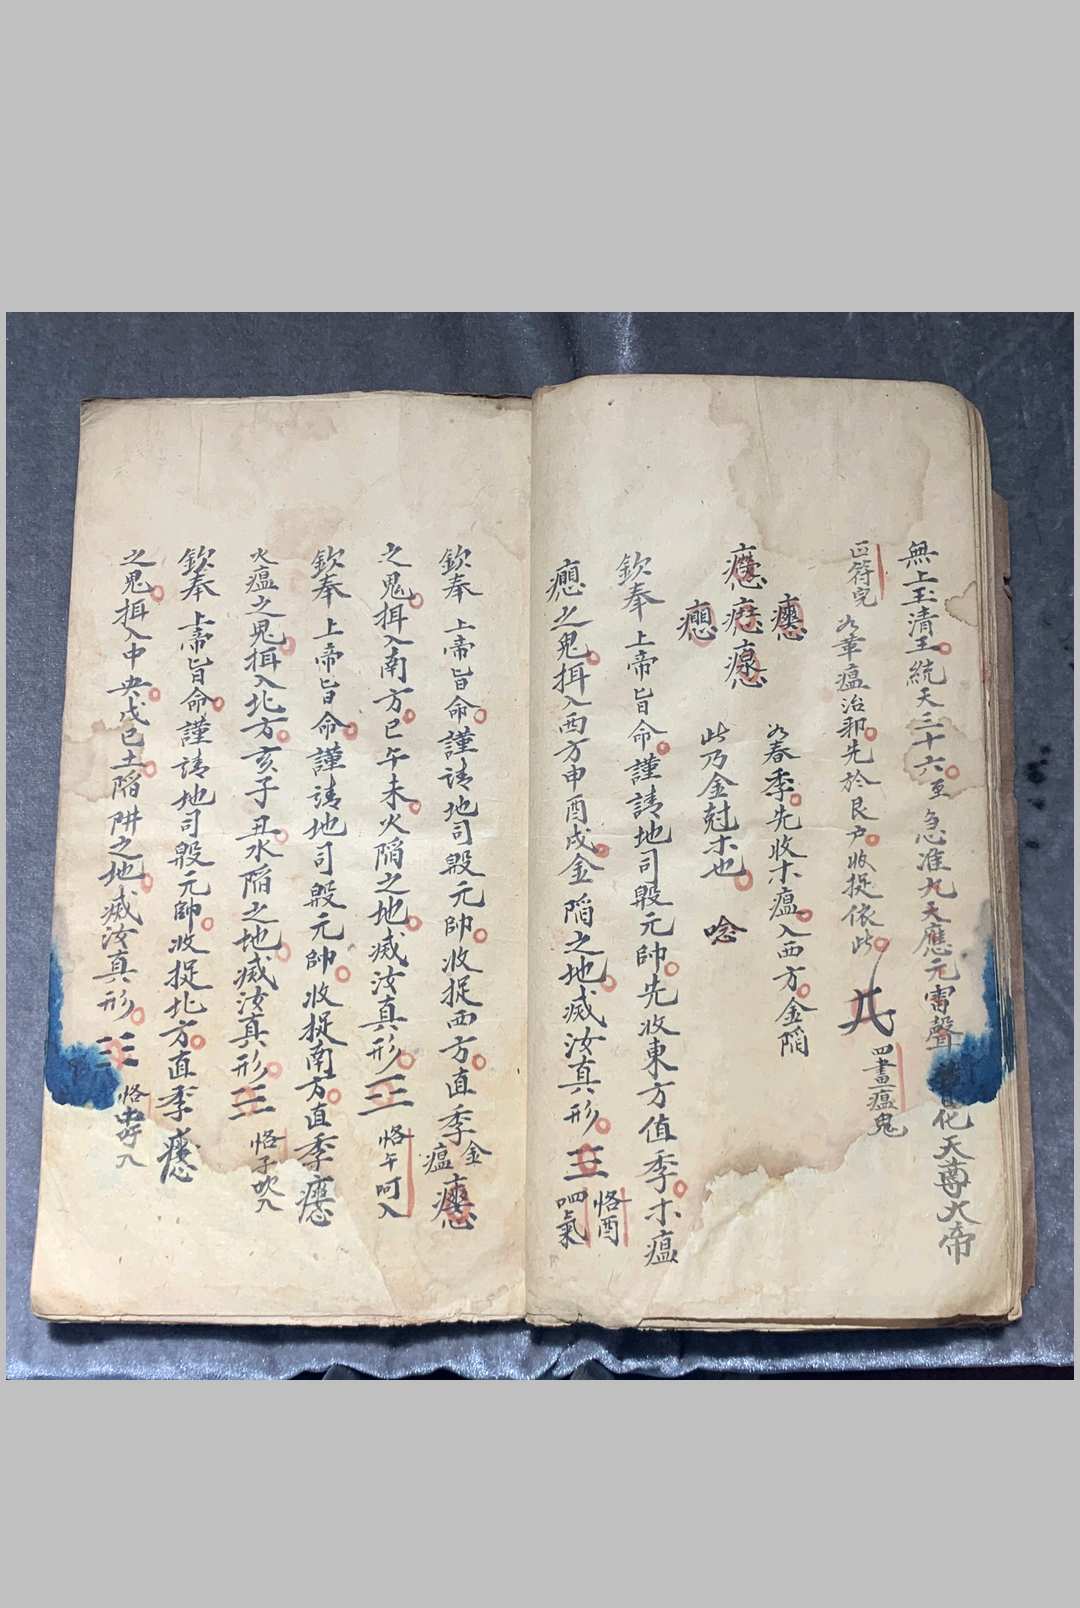 無上玉清王統天三十六至急准九天應元雷聲普化天尊大帝
符完 治邪先於艮戶收捉依此 四畫瘟鬼
春季先收木瘟入西方金陷
此乃金尅木也 唸
欽奉 上帝旨命謹請地司殷元帥先收東方值季木瘟
之鬼揖入西方申酉戌金陷之地滅汝真形 三 恪酉 呬氣
欽奉 上帝旨命謹請地司殷元帥收捉西方直季金瘟
之鬼揖入南方巳午未火陷之地滅汝真形 三 恪午呵入
欽奉 上帝旨命謹請地司殷元帥收捉南方直季
火瘟之鬼揖入北方亥子丑水陷之地滅汝真形 三 恪子吹入
欽奉 上帝旨命謹請地司殷元帥收捉北方直季
之鬼揖入中央戊己土陷阱之地滅汝真形 三 恪中呼入